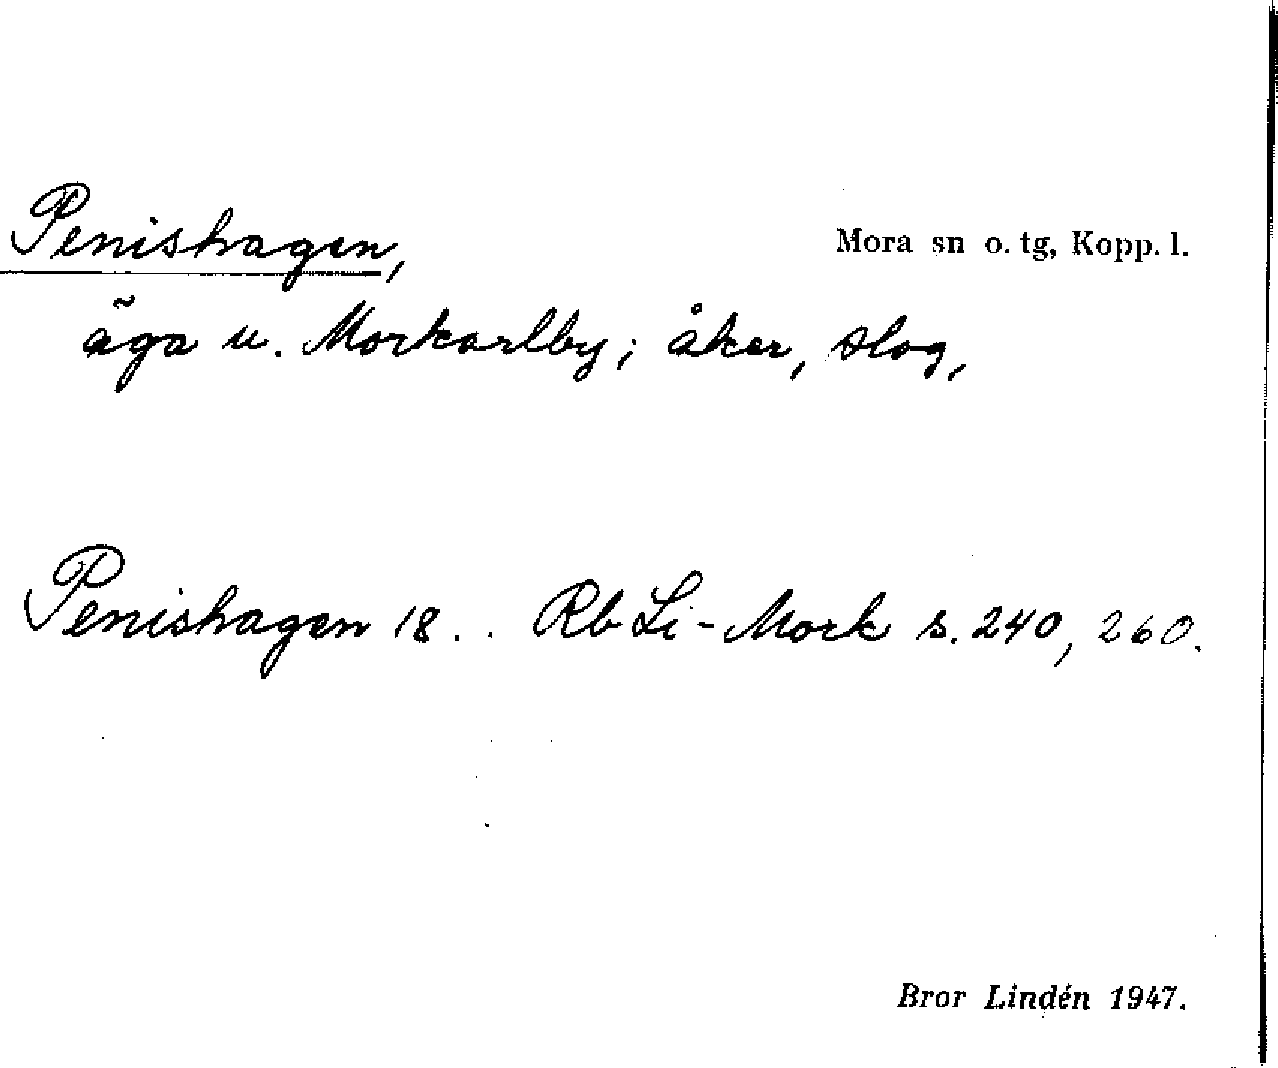 Penishagen,
Mora sn o. tg, Kopp. l.
äga u. Morkarlby; åker, slog,
Penishagen 18.. Rb Li-Mork s. 240, 260.
Bror Lindén 1947.